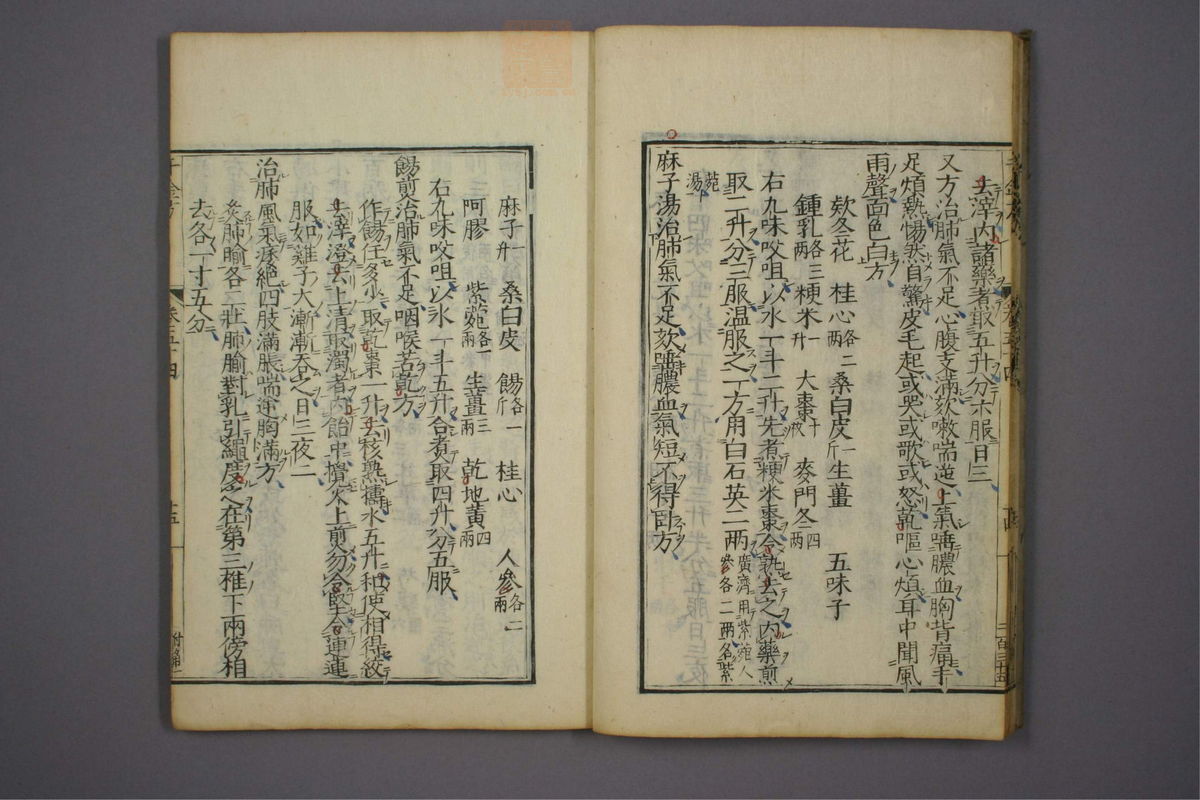 去滓內諸藥煮取五升分六服日三
又方治肺氣不足心腹支滿欬嗽喘逆上氣唾膿血胸背痛手
足煩熱惕然自驚皮毛起或哭或歌或怒乾嘔心煩耳中聞風
雨聲面色白方
欵冬花 桂心各二兩 桑白皮一斤 生薑 五味子
鍾乳各三兩 粳米一升 大棗十枚 麥門冬四兩
右九味㕮咀以水一斗二升先煮粳米棗令熟去之內藥煎
取二升分三服溫服之一方用白石英二兩廣濟用紫菀人參各二兩名紫
菀湯
麻子湯治肺氣不足欬唾膿血氣短不得卧方
麻子一升 桑白皮 餳各一斤 桂心 人參各二兩
阿膠 紫菀各一兩 生薑三兩 乾地黃四兩
右九味㕮咀以水一斗五升合煮取四升分五服
餳煎治肺氣不足咽喉苦乾方
作餳任多少取乾棗一升去核熟擣水五升和使相得絞
去滓澄去上清取濁者內飴中攪火上煎勿令堅令連連
服如雞子大漸漸吞之日三夜二
治肺風氣痿絕四肢滿脹喘逆胸滿方
灸肺腧各二壯肺腧對乳引繩度之在第三椎下兩傍相
去各一寸五分